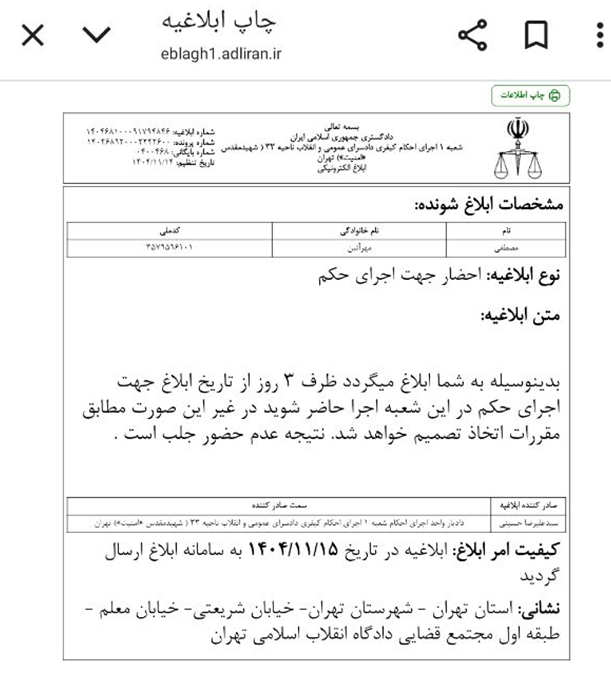 چاپ ابلاغیه
eblagh1.adliran.ir
چاپ اطلاعات
بسمه تعالی
دادگستری جمهوری اسلامی ایران
شعبه ۱ اجرای احکام کیفری دادسرای عمومی و انقلاب ناحیه ۳۳ ( شهیدمقدس
«امنیت») تهران
ابلاغ الکترونیکی
شماره ابلاغیه: ۱۴۰۴۶۸۱۰۰۰۹۱۷۹۴۸۴۶
شماره پرونده: ۱۴۰۴۶۸۹۲۰۰۰۲۲۴۲۶۰۰
شماره بایگانی: ۰۴۰۰۴۶۸
تاریخ تنظیم: ۱۴۰۴/۱۱/۱۴
مشخصات ابلاغ شونده:
نام نام خانوادگی کدملی
مصطفی مهرآئین ۳۵۷۹۵۹۶۱۰۱
نوع ابلاغیه: احضار جهت اجرای حکم
متن ابلاغیه:
بدینوسیله به شما ابلاغ میگردد ظرف ۳ روز از تاریخ ابلاغ جهت
اجرای حکم در این شعبه اجرا حاضر شوید در غیر این صورت مطابق
مقررات اتخاذ تصمیم خواهد شد. نتیجه عدم حضور جلب است .
صادر کننده ابلاغیه سمت صادر کننده
سیدعلیرضا حسینی دادیار واحد اجرای احکام شعبه ۱ اجرای احکام کیفری دادسرای عمومی و انقلاب ناحیه ۳۳ ( شهیدمقدس «امنیت») تهران
کیفیت امر ابلاغ: ابلاغیه در تاریخ ۱۴۰۴/۱۱/۱۵ به سامانه ابلاغ ارسال
گردید
نشانی: استان تهران - شهرستان تهران- خیابان شریعتی- خیابان معلم -
طبقه اول مجتمع قضایی دادگاه انقلاب اسلامی تهران